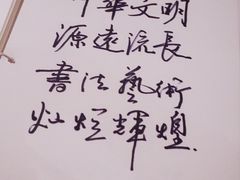 中華文明
源遠流長
書法藝術
灿烂輝煌.